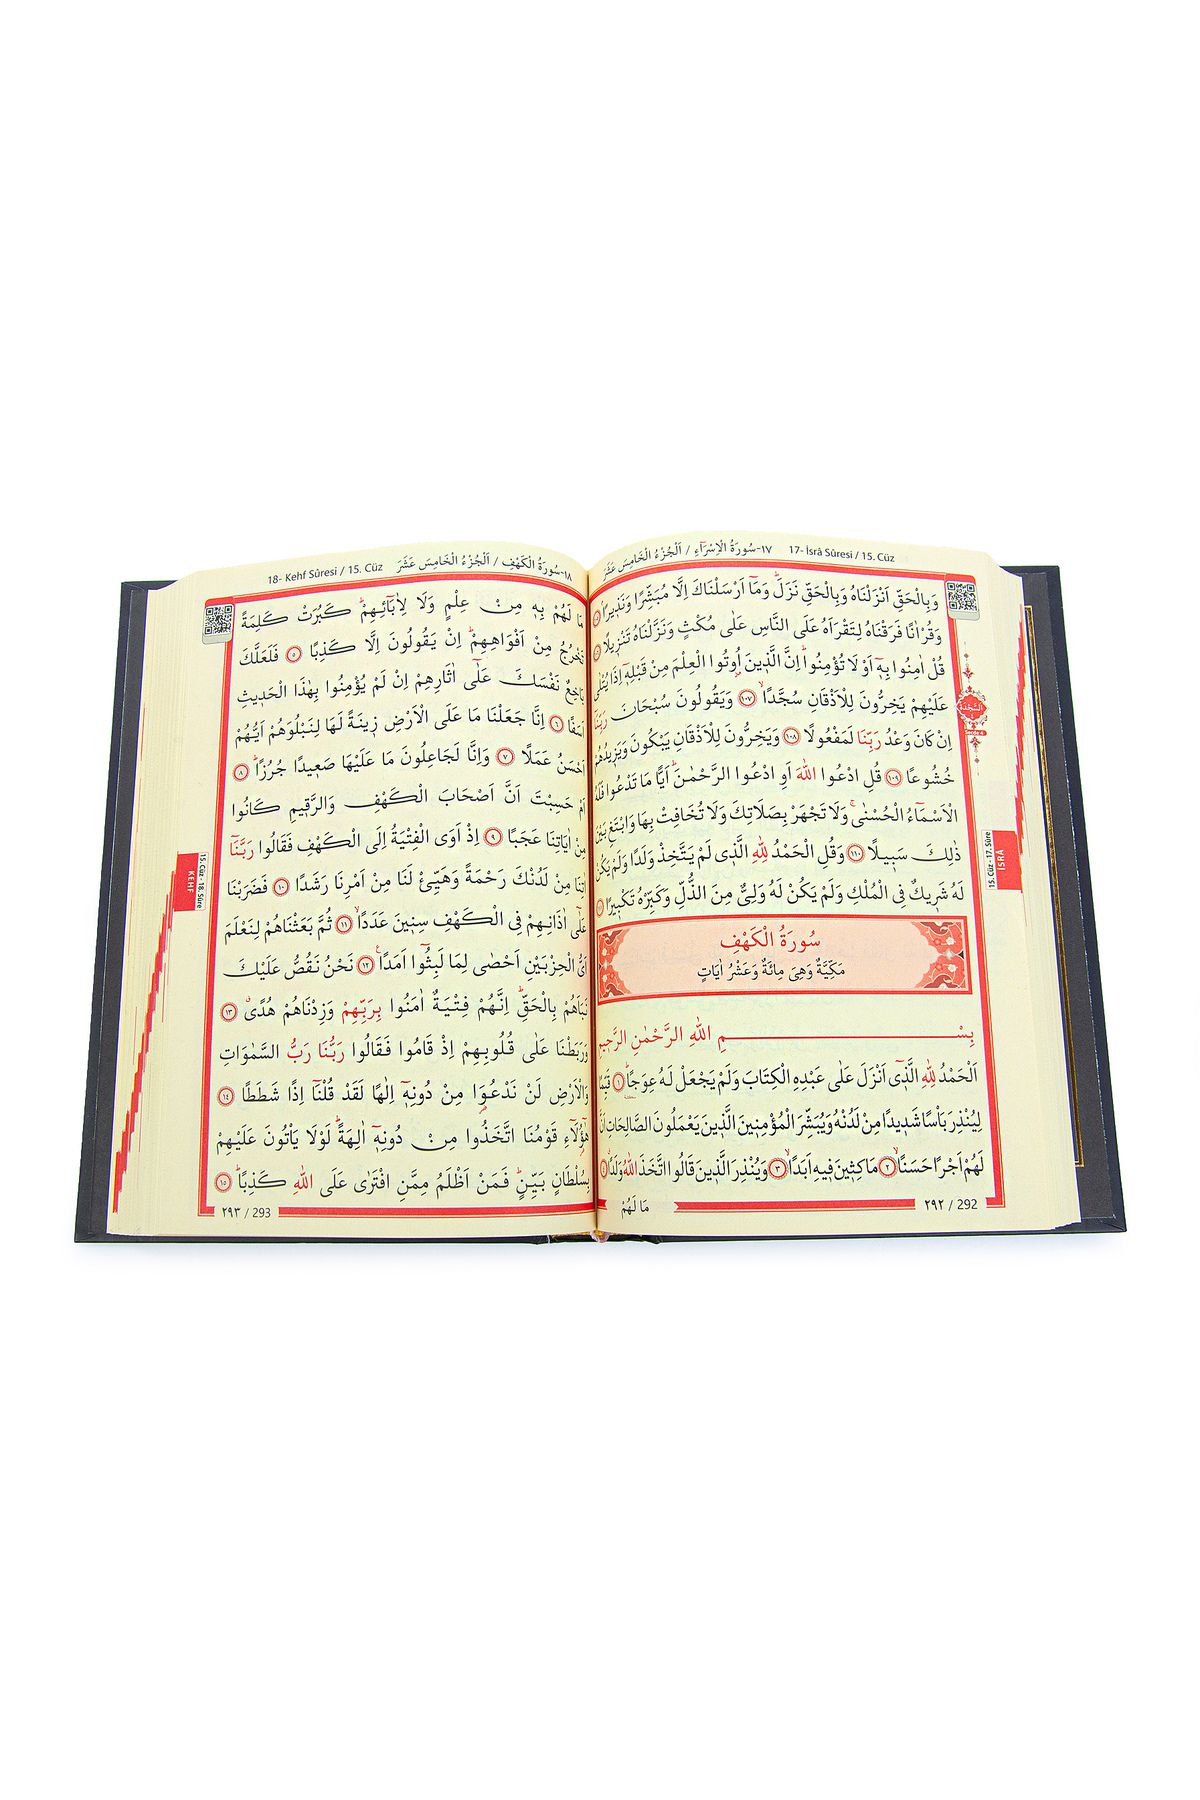 ١٧-سُورَةُ الْاِسْرَٓاءِ / اَلْجُزْءُ الْخَامِسَ عَشَرَ 17- İsrâ Sûresi / 15. Cüz
وَبِالْحَقِّ اَنْزَلْنَاهُ وَبِالْحَقِّ نَزَلَۜ وَمَٓا اَرْسَلْنَاكَ اِلَّا مُبَشِّرًا وَنَذ۪يرًاۢ
وَقُرْاٰنًا فَرَقْنَاهُ لِتَقْرَاَهُ عَلَى النَّاسِ عَلٰى مُكْثٍ وَنَزَّلْنَاهُ تَنْز۪يلًا
قُلْ اٰمِنُوا بِه۪ٓ اَوْ لَا تُؤْمِنُواۜ اِنَّ الَّذ۪ينَ اُو۫تُوا الْعِلْمَ مِنْ قَبْلِه۪ٓ اِذَا يُتْلٰى
عَلَيْهِمْ يَخِرُّونَ لِلْاَذْقَانِ سُجَّدًاۙ ١٠٧ وَيَقُولُونَ سُبْحَانَ رَبِّنَٓا
اِنْ كَانَ وَعْدُ رَبِّنَا لَمَفْعُولًا ١٠٨ وَيَخِرُّونَ لِلْاَذْقَانِ يَبْكُونَ وَيَز۪يدُهُمْ
خُشُوعًا ١٠٩ قُلِ ادْعُوا اللّٰهَ اَوِ ادْعُوا الرَّحْمٰنَۜ اَيًّا مَا تَدْعُوا فَلَهُ
الْاَسْمَٓاءُ الْحُسْنٰىۚ وَلَا تَجْهَرْ بِصَلَاتِكَ وَلَا تُخَافِتْ بِهَا وَابْتَغِ بَيْنَ
ذٰلِكَ سَب۪يلًا ١١٠ وَقُلِ الْحَمْدُ لِلّٰهِ الَّذ۪ي لَمْ يَتَّخِذْ وَلَدًا وَلَمْ يَكُنْ
لَهُ شَر۪يكٌ فِي الْمُلْكِ وَلَمْ يَكُنْ لَهُ وَلِيٌّ مِنَ الذُّلِّ وَكَبِّرْهُ تَكْب۪يرًا
سُورَةُ الْكَهْفِ
مَكِّيَّةٌ وَهِيَ مِائَةٌ وَعَشْرُ اٰيَاتٍ
بِسْمِ اللّٰهِ الرَّحْمٰنِ الرَّح۪يمِ
اَلْحَمْدُ لِلّٰهِ الَّذ۪ٓي اَنْزَلَ عَلٰى عَبْدِهِ الْكِتَابَ وَلَمْ يَجْعَلْ لَهُ عِوَجًاۜ ١ قَيِّمًا
لِيُنْذِرَ بَاْسًا شَد۪يدًا مِنْ لَدُنْهُ وَيُبَشِّرَ الْمُؤْمِن۪ينَ الَّذ۪ينَ يَعْمَلُونَ الصَّالِحَاتِ اَنَّ
لَهُمْ اَجْرًا حَسَنًاۙ ٢ مَاكِث۪ينَ ف۪يهِ اَبَدًاۙ ٣ وَيُنْذِرَ الَّذ۪ينَ قَالُوا اتَّخَذَ اللّٰهُ وَلَدًاۗ ٤
مَا لَهُمْ
٢٩٢ / 292
السَّجْدَة
15. Cüz - 17. Sûre
İSRÂ
18- Kehf Sûresi / 15. Cüz ١٨-سُورَةُ الْكَهْفِ / اَلْجُزْءُ الْخَامِسَ عَشَرَ
مَا لَهُمْ بِه۪ مِنْ عِلْمٍ وَلَا لِاٰبَٓائِهِمْۜ كَبُرَتْ كَلِمَةً
تَخْرُجُ مِنْ اَفْوَاهِهِمْۜ اِنْ يَقُولُونَ اِلَّا كَذِبًا ٥ فَلَعَلَّكَ
بَاخِعٌ نَفْسَكَ عَلٰٓى اٰثَارِهِمْ اِنْ لَمْ يُؤْمِنُوا بِهٰذَا الْحَد۪يثِ
اَسَفًا ٦ اِنَّا جَعَلْنَا مَا عَلَى الْاَرْضِ ز۪ينَةً لَهَا لِنَبْلُوَهُمْ اَيُّهُمْ
اَحْسَنُ عَمَلًا ٧ وَاِنَّا لَجَاعِلُونَ مَا عَلَيْهَا صَع۪يدًا جُرُزًاۜ ٨
اَمْ حَسِبْتَ اَنَّ اَصْحَابَ الْكَهْفِ وَالرَّق۪يمِ كَانُوا
مِنْ اٰيَاتِنَا عَجَبًا ٩ اِذْ اَوَى الْفِتْيَةُ اِلَى الْكَهْفِ فَقَالُوا رَبَّنَٓا
اٰتِنَا مِنْ لَدُنْكَ رَحْمَةً وَهَيِّئْ لَنَا مِنْ اَمْرِنَا رَشَدًا ١٠ فَضَرَبْنَا
عَلٰٓى اٰذَانِهِمْ فِي الْكَهْفِ سِن۪ينَ عَدَدًاۙ ١١ ثُمَّ بَعَثْنَاهُمْ لِنَعْلَمَ
اَيُّ الْحِزْبَيْنِ اَحْصٰى لِمَا لَبِثُٓوا اَمَدًا۟ ١٢ نَحْنُ نَقُصُّ عَلَيْكَ
نَبَاَهُمْ بِالْحَقِّۜ اِنَّهُمْ فِتْيَةٌ اٰمَنُوا بِرَبِّهِمْ وَزِدْنَاهُمْ هُدًىۗ ١٣
وَرَبَطْنَا عَلٰى قُلُوبِهِمْ اِذْ قَامُوا فَقَالُوا رَبُّنَا رَبُّ السَّمٰوَاتِ
وَالْاَرْضِ لَنْ نَدْعُوَ۬ا مِنْ دُونِه۪ٓ اِلٰهًا لَقَدْ قُلْنَٓا اِذًا شَطَطًا ١٤
هٰٓؤُ۬لَٓاءِ قَوْمُنَا اتَّخَذُوا مِنْ دُونِه۪ٓ اٰلِهَةًۜ لَوْلَا يَاْتُونَ عَلَيْهِمْ
بِسُلْطَانٍ بَيِّنٍۜ فَمَنْ اَظْلَمُ مِمَّنِ افْتَرٰى عَلَى اللّٰهِ كَذِبًاۜ ١٥
٢٩٣ / 293
15. Cüz - 18. Sûre
KEHF